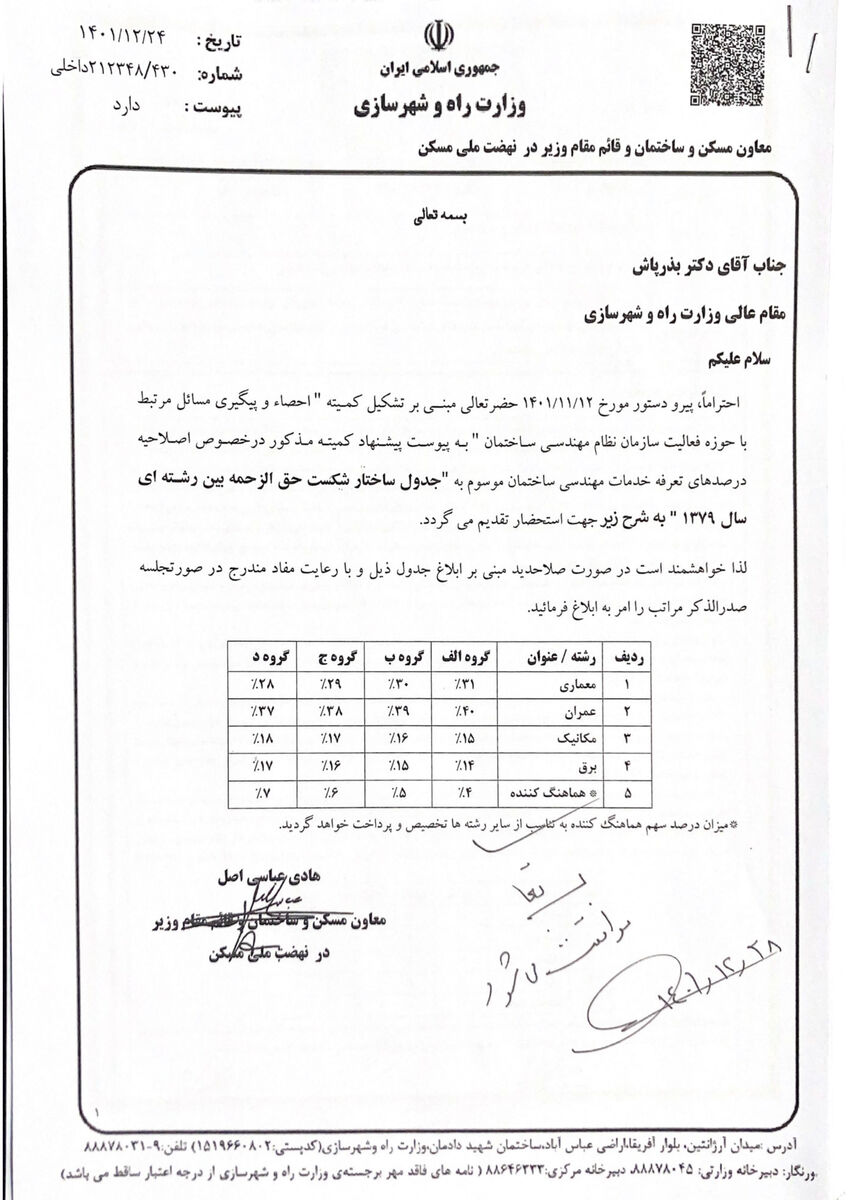 جمهوری اسلامی ایران
وزارت راه و شهرسازی
تاریخ : ۱۴۰۱/۱۲/۲۴
شماره: ۲۱۲۳۴۸/۴۳۰داخلی
پیوست : دارد
معاون مسکن و ساختمان و قائم مقام وزیر در نهضت ملی مسکن
بسمه تعالی
جناب آقای دکتر بذرپاش
مقام عالی وزارت راه و شهرسازی
سلام علیکم
احتراماً، پیرو دستور مورخ ۱۴۰۱/۱۱/۱۲ حضرتعالی مبنی بر تشکیل کمیته " احصاء و پیگیری مسائل مرتبط
با حوزه فعالیت سازمان نظام مهندسی ساختمان " به پیوست پیشنهاد کمیته مذکور درخصوص اصلاحیه
درصدهای تعرفه خدمات مهندسی ساختمان موسوم به "جدول ساختار شکست حق الزحمه بین رشته ای
سال ۱۳۷۹ " به شرح زیر جهت استحضار تقدیم می گردد.
لذا خواهشمند است در صورت صلاحدید مبنی بر ابلاغ جدول ذیل و با رعایت مفاد مندرج در صورتجلسه
صدرالذکر مراتب را امر به ابلاغ فرمائید.
ردیف رشته / عنوان گروه الف گروه ب گروه ج گروه د
۱ معماری ٪۳۱ ٪۳۰ ٪۲۹ ٪۲۸
۲ عمران ٪۴۰ ٪۳۹ ٪۳۸ ٪۳۷
۳ مکانیک ٪۱۵ ٪۱۶ ٪۱۷ ٪۱۸
۴ برق ٪۱۴ ٪۱۵ ٪۱۶ ٪۱۷
۵ * هماهنگ کننده ٪۴ ٪۵ ٪۶ ٪۷
*میزان درصد سهم هماهنگ کننده به تناسب از سایر رشته ها تخصیص و پرداخت خواهد گردید.
هادی عباسی اصل
معاون مسکن و ساختمان و قائم مقام وزیر
در نهضت ملی مسکن
موافقت می شود
۱۴۰۱/۱۲/۲۸
۱
آدرس :میدان آرژانتین، بلوار آفریقا،اراضی عباس آباد،ساختمان شهید دادمان،وزارت راه وشهرسازی(کدپستی:۱۵۱۹۶۶۰۸۰۲) تلفن:۹-۸۸۸۷۸۰۳۱
ورنگار: دبیرخانه وزارتی: ۸۸۸۷۸۰۴۵، دبیرخانه مرکزی:۸۸۶۴۶۳۳۳ ( نامه های فاقد مهر برجسته‌ی وزارت راه و شهرسازی از درجه اعتبار ساقط می باشد)